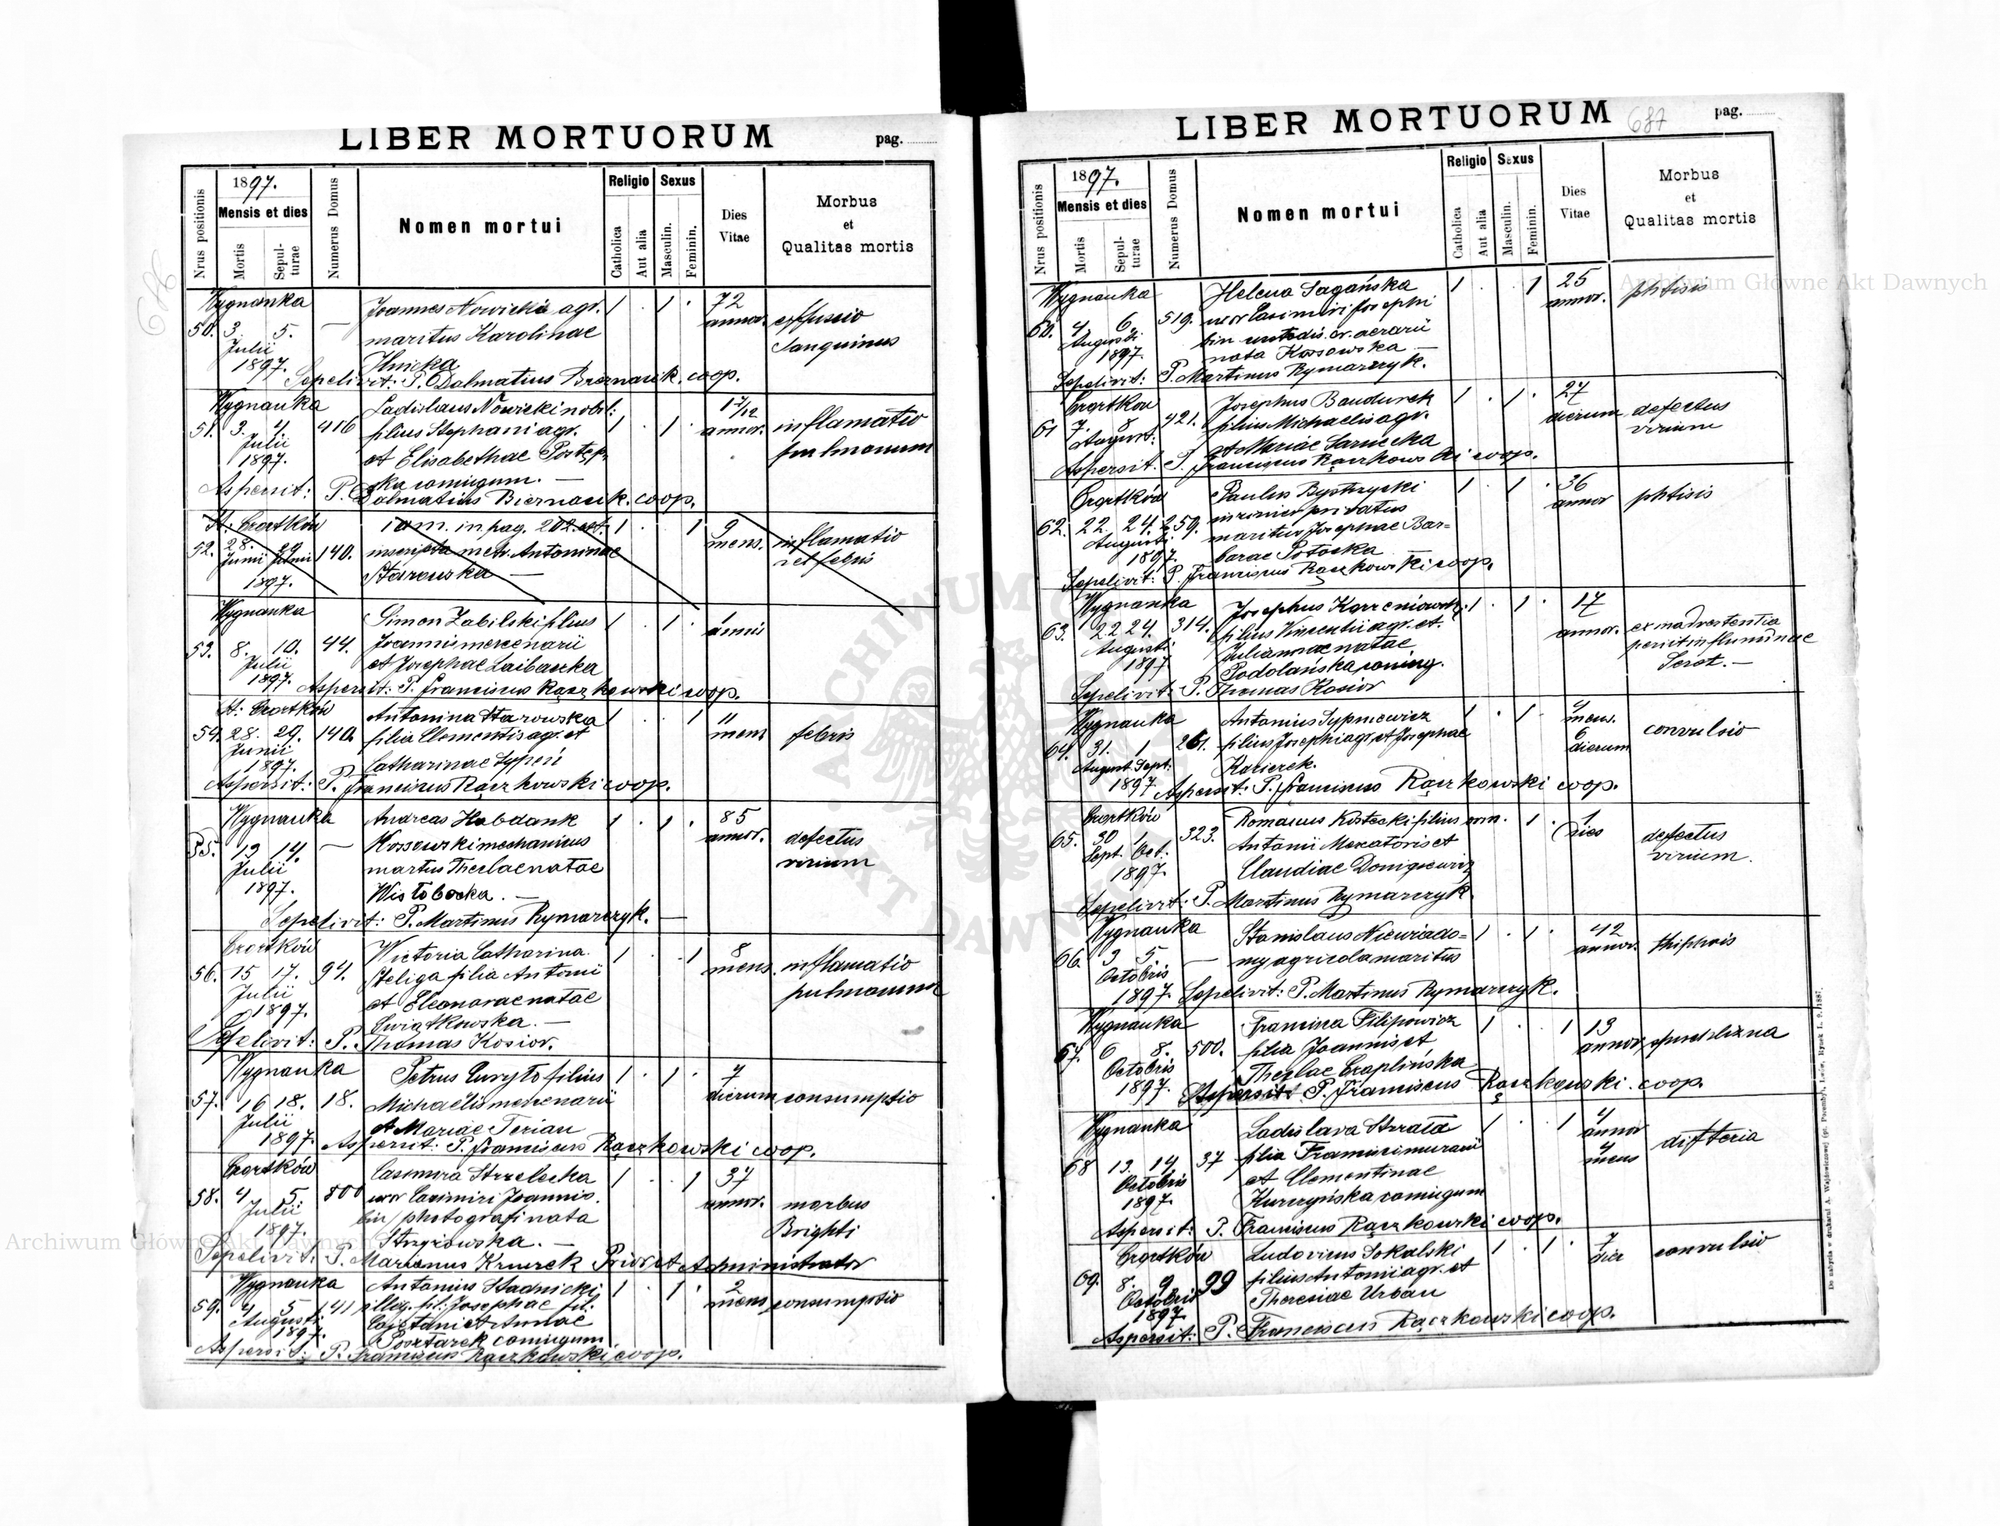 LIBER MORTUORUM
pag.
Nrus positionis
1897.
Mensis et dies
Mortis
Sepul-
turae
Numerus Domus
Nomen mortui
Religio
Catholica
Aut alia
Sexus
Masculin.
Feminin.
Dies
Vitae
Morbus
et
Qualitas mortis
686
Wygnanka
Joannes Nowicki agr. 1 . 1 . 72
50. 3. 5. — maritus Karolinae annor. effusio
Julii Sanguinus
1897. Ilnicka
Sepelivit: P. Dalmatius Biernacik. coop.
Wygnanka Ladislaus Nowicki nobil: 1 7/12
51. 3. 4. 416 filius Stephani agr. 1 . 1 . annor. inflamatio
Julii et Elisabethae Postęp- pulmonum
1897. ska coniugum. —
Aspersit: P. Dalmatius Biernacik. coop.
St: Czortków iam in pag. 202 1 . . 1 9 inflamatio
52. 28. 29 140. inscripta Antoninae mens. et febris
Junii Junii
1897. Starowska —
Wygnanka Simon Zabilski filius 1 . 1 .
53. 8. 10. 44. Joannis mercenarii annis
Julii et Josephae Laibaszka
1897. Aspersit: P. Franciscus Rączkowski coop.
St: Czortków Antonina Starowska 1 . . 1 11
54. 28. 29. 140. filia Clementis agr. et mens febris
Junii
1897. Catharinae Sypeń
Aspersit: P. Franciscus Rączkowski coop.
Wygnanka Andreas Habdank 1 . 1 . 85
55. 12 14. — Kossowski mechanicus annor. defectus
Julii maritus Theclae natae virium
1897. Wisłobocka. —
Sepelivit: P. Martinus Rymarczyk. —
Czortków Wictoria Catharina 1 . . 1 8
56. 15 17. 94. Steliga filia Antonii mens. inflamatio
Julii et Eleonorae natae pulmonum
1897. Swiątkowska. —
Sepelivit: P. Thomas Kosior.
Wygnanka Petrus Curyto filius 1 . 1 . 7
57. 16 18. 18. Michaelis mercenarii dierum consumptio
Julii et Mariae Terian
1897. Aspersit: P. Franciscus Rączkowski coop.
Czortków Casimira Strzelecka 1 . . 1 37
58. 4 5. 800 uxor Casimiri Joannis annor. morbus
Julii bin/ photografi nata Brighti
1897. Stryiowska. —
Sepelivit: P. Marianus Administrator
Wygnanka Antonius Stadnicki 1 . 1 . 2
59. 4 5 141 illeg. fil: Josephae fil: mens consumptio
Augusti Cajetani et Annae
1897. Posztarek coniugum
Aspersit: P. Franciscus Rączkowski coop.
LIBER MORTUORUM
687
pag.
Nrus positionis
1897.
Mensis et dies
Mortis
Sepul-
turae
Numerus Domus
Nomen mortui
Religio
Catholica
Aut alia
Sexus
Masculin.
Feminin.
Dies
Vitae
Morbus
et
Qualitas mortis
Wygnanka Helena Sagańska 1 . . 1 25
60. 4 6. 519. uxor Casimiri Josephi annor. phtisis
Augusti bin custodis cr. aerarii
1897. nata Kossowska —
Sepelivit: P. Martinus Rymarczyk.
Czortkow Josephus Bandurek 1 . 1 . 27
61 7. 8 421. filius Michaelis agr. dierum defectus
August: et Mariae Sarnecka virium
Aspersit: P. Franciscus Rączkowski coop.
Czortków Paulus Bystrzycki 1 . 1 . 36
62. 22. 24. 259. privatus annor phtisis
Augusti maritus Josephae Bar-
1897. barae Potocka
Sepelivit: P. Franciscus Rączkowski coop.
Wygnanka Josephus Korzeniowski 1 . 1 . 17
63. 22 24. 314. filius Vincentii agr. et annor. ex inadvertentia
Augusti Juliannae natae periit in flumine
1897 Podolańska coniug. Seret. —
Sepelivit: P. Thomas Kosior
Wygnanka Antonius Sypniewicz 1 . 1 . mens.
64. 31. 1 261. filius Josephi agr. et Josephae 6 convulsio
August. Sept: dierum
1897. Aspersit: P. Franciscus Rączkowski coop.
Czortków Romanus Kostecki filius 1 . 1
65. 30 1 323. Antonii Mercatoris et dies defectus
Sept. Oct. virium.
1897. Claudiae Donigiewicz
Sepelivit: P. Martinus Rymarczyk.
Wygnanka Stanislaus Niewiado- 1 . 1 . 42
66. 3 5. — my agricola maritus annor. thiphois
Octobris
1897. Sepelivit: P. Martinus Rymarczyk.
Wygnanka Francisca Filipowicz 1 . . 1 13
67. 6 8. 500. filia Joannis et annor
Octobris Theclae Czaplińska
1897. Aspersit P. Franciscus Rączkowski. coop.
Wygnanka Ladislava 1 . . 1 4
68 13. 14 37 filia Francisci murarii annor difteria
Octobris et Clementinae 4
1897. Kurczyńska coniugum mens
Aspersit: P. Franciscus Rączkowski coop.
Czortków Ludovicus Sokalski 1 . 1 . 7
69. 8. 9 99 filius Antonii agr. et dier convulsio
Octobris Theresiae Urban
1897.
Aspersit: P. Franciscus Rączkowski coop.
Archiwum Główne Akt Dawnych
Archiwum Główne Akt Dawnych
ARCHIWUM GŁÓWNE AKT DAWNYCH